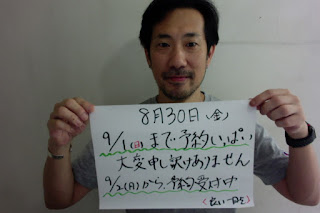 8月30日(金)
9/1(日)まで予約いっぱい
大変申し訳ありません
9/2(月)から、予約受付中